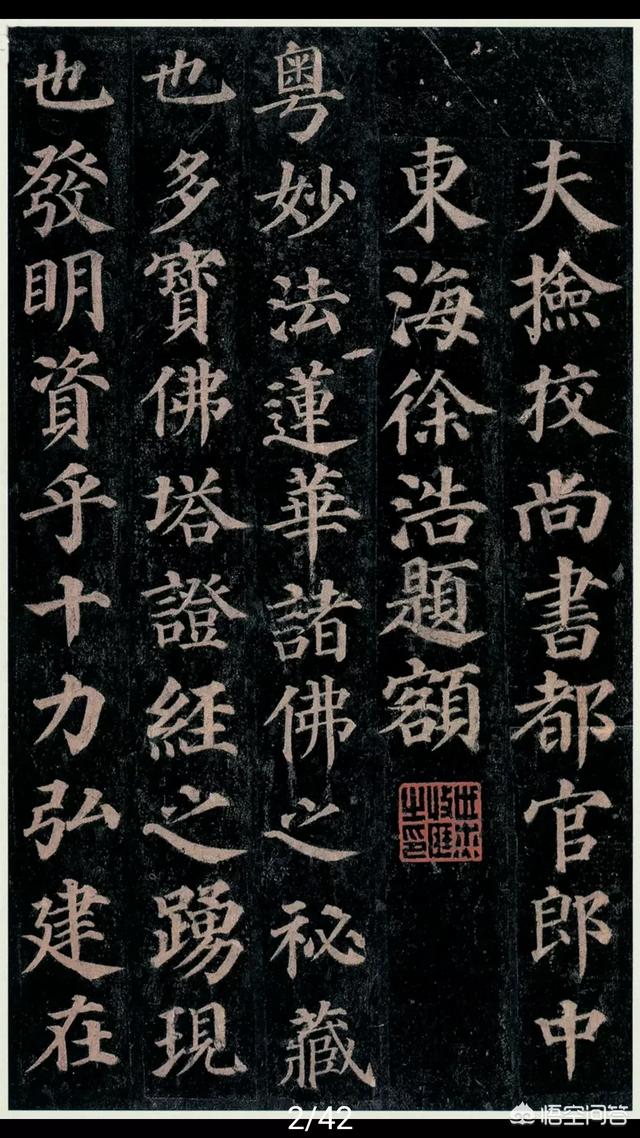 夫撿校尚書都官郎中
東海徐浩題額
粤妙法蓮華諸佛之祕藏
也多寶佛塔證經之踴現
也發明資乎十力弘建在
2/42
悟空问答